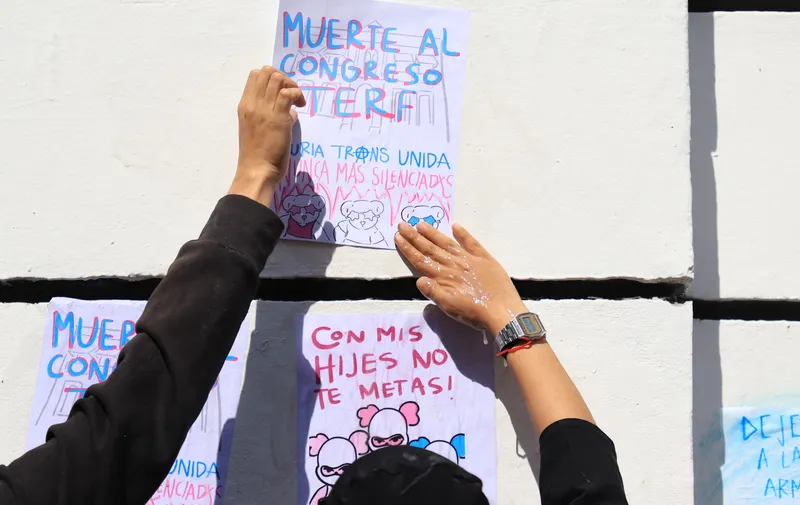 MUERTE AL
CONGRESO
TERF
URIA TRANS UNIDA
NUNCA MÁS SILENCIADXS
MUER
CON
UNIDA
SILENCIADXS
CON MIS
HIJES NO
TE METAS!
DEJE
A LA
ARM